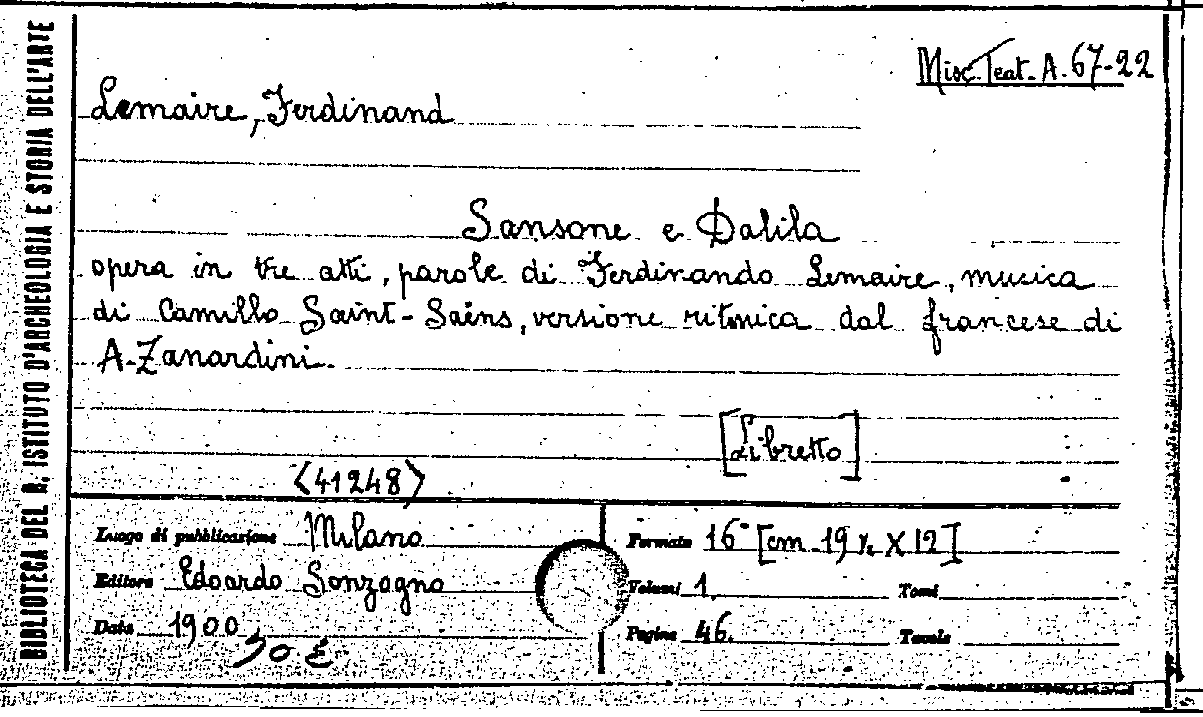 BIBLIOTECA DEL R. ISTITUTO D'ARCHEOLOGIA E STORIA DELL'ARTE
Misc. Teat. A. 67-22
Lemaire, Ferdinand
Sansone e Dalila
opera in tre atti, parole di Ferdinando Lemaire, musica
di Camillo Saint-Saëns, versione ritmica dal francese di
A. Zanardini.
[Libretto]
<41248>
Luogo di pubblicazione Milano
Editore Edoardo Sonzogno
Data 1900
Formato 16° [cm 19 X 12]
Volumi 1. Tomi
Pagine 46. Tavole